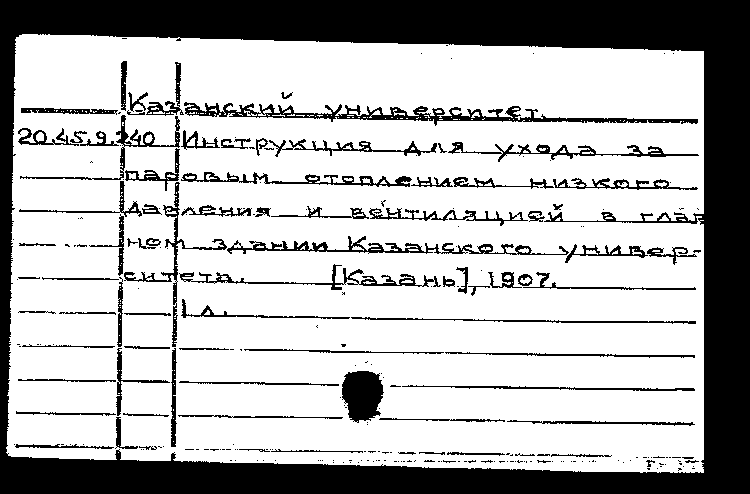 Казанский университет.
20.45.9.240 Инструкция для ухода за
паровым отоплением низкого
давления и вентиляцией в глав
ном здании Казанского универ-
ситета. [Казань], 1907.
1 л.